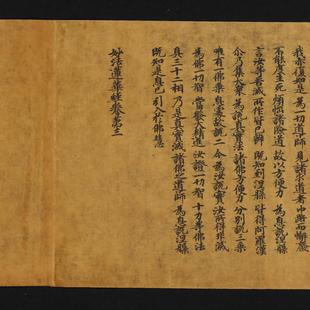 我亦復如是 為一切導師 見諸求道者 中路而懈廢
不能度生死 煩惱諸險道 故以方便力 為息說涅槃
言汝等苦滅 所作皆已辦 既知到涅槃 皆得阿羅漢
尒乃集大衆 為說真實法 諸佛方便力 分別說三乘
唯有一佛乘 息處故說二 今為汝說實 汝所得非滅
為佛一切智 當發大精進 汝證一切智 十力等佛法
具三十二相 乃是真實滅 諸佛之導師 為息說涅槃
既知是息已 引入於佛慧
妙法蓮華經卷第三